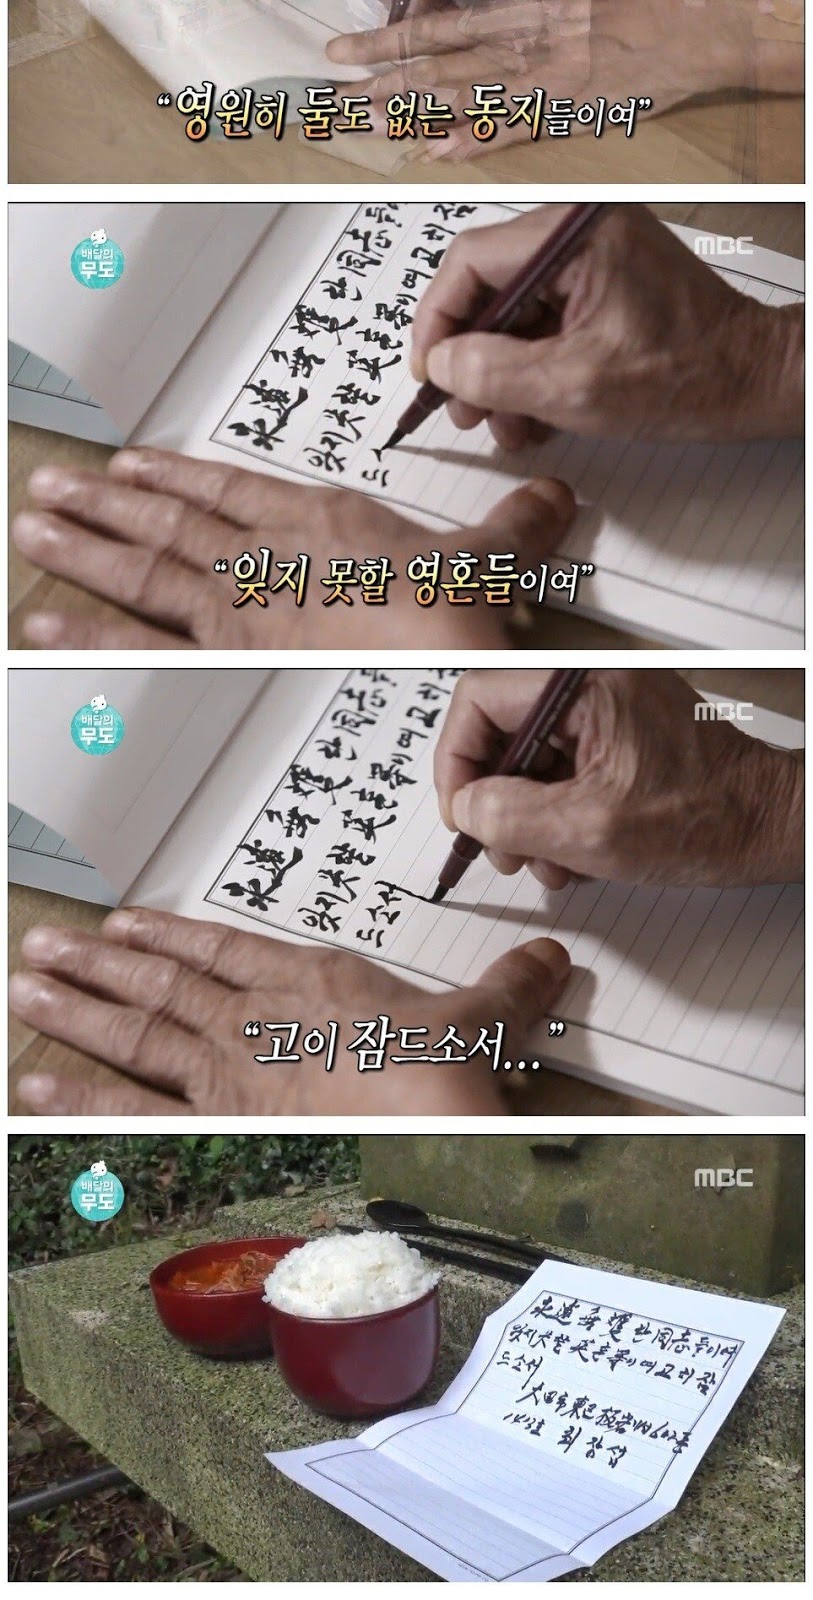 “영원히 둘도 없는 동지들이여”
배달의
무도
MBC
永遠 無雙한 同志들
잊지 못할 英혼들이여 고히 잠
드소
“잊지 못할 영혼들이여”
배달의
무도
MBC
永遠 無雙한 同志들
잊지 못할 英혼들이여 고히
드소서
“고이 잠드소서...”
배달의
무도
MBC
永遠 無雙한 同志들이여
잊지 못할 英혼들이여 고히 잠
드소서
大田市 東区 板岩
최장섭